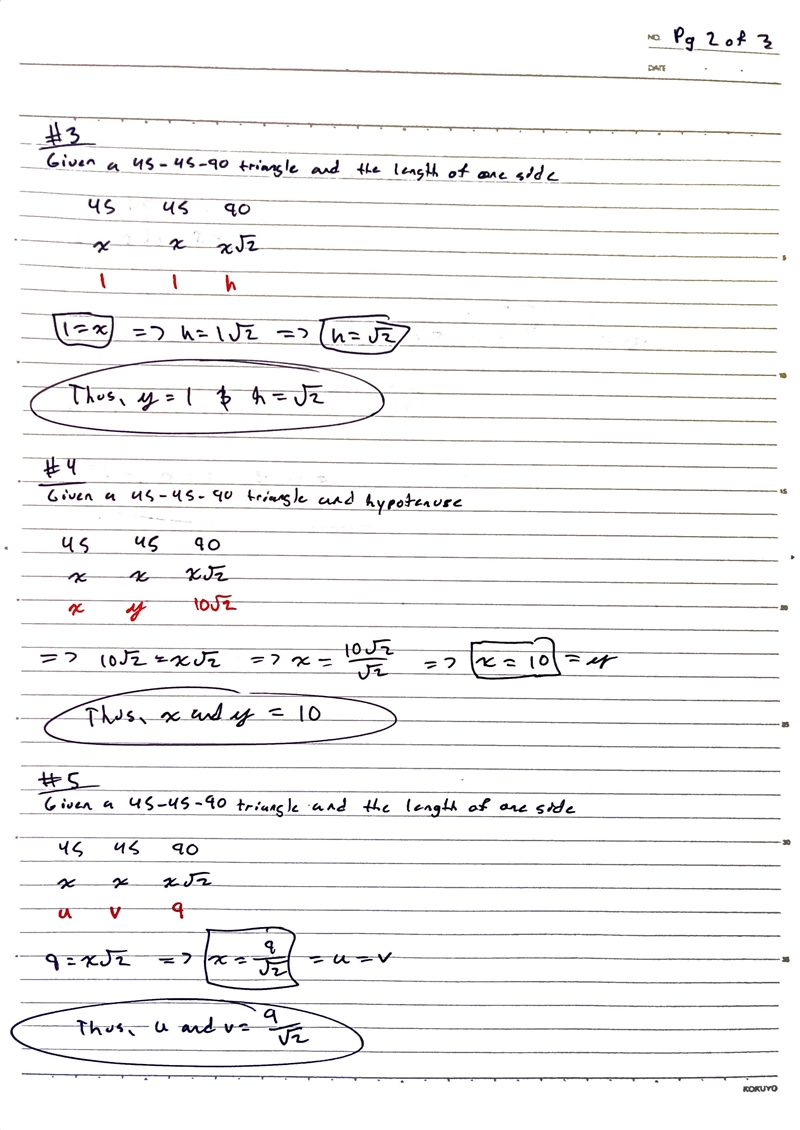 NO. Pg 2 of 3
DATE . .
#3
Given a 45-45-90 triangle and the length of one side
45 45 90
x x x√2
1 1 h
1=x => h=1√2 => h=√2
Thus, y=1 & h=√2
#4
Given a 45-45-90 triangle and hypotenuse
45 45 90
x x x√2
x y 10√2
=> 10√2=x√2 => x=10√2/√2 => x=10=y
Thus, x and y = 10
#5
Given a 45-45-90 triangle and the length of one side
45 45 90
x x x√2
u v 9
9=x√2 => x=9/√2 = u=v
Thus, u and v=9/√2
5
10
15
20
25
30
35
KOKUYO